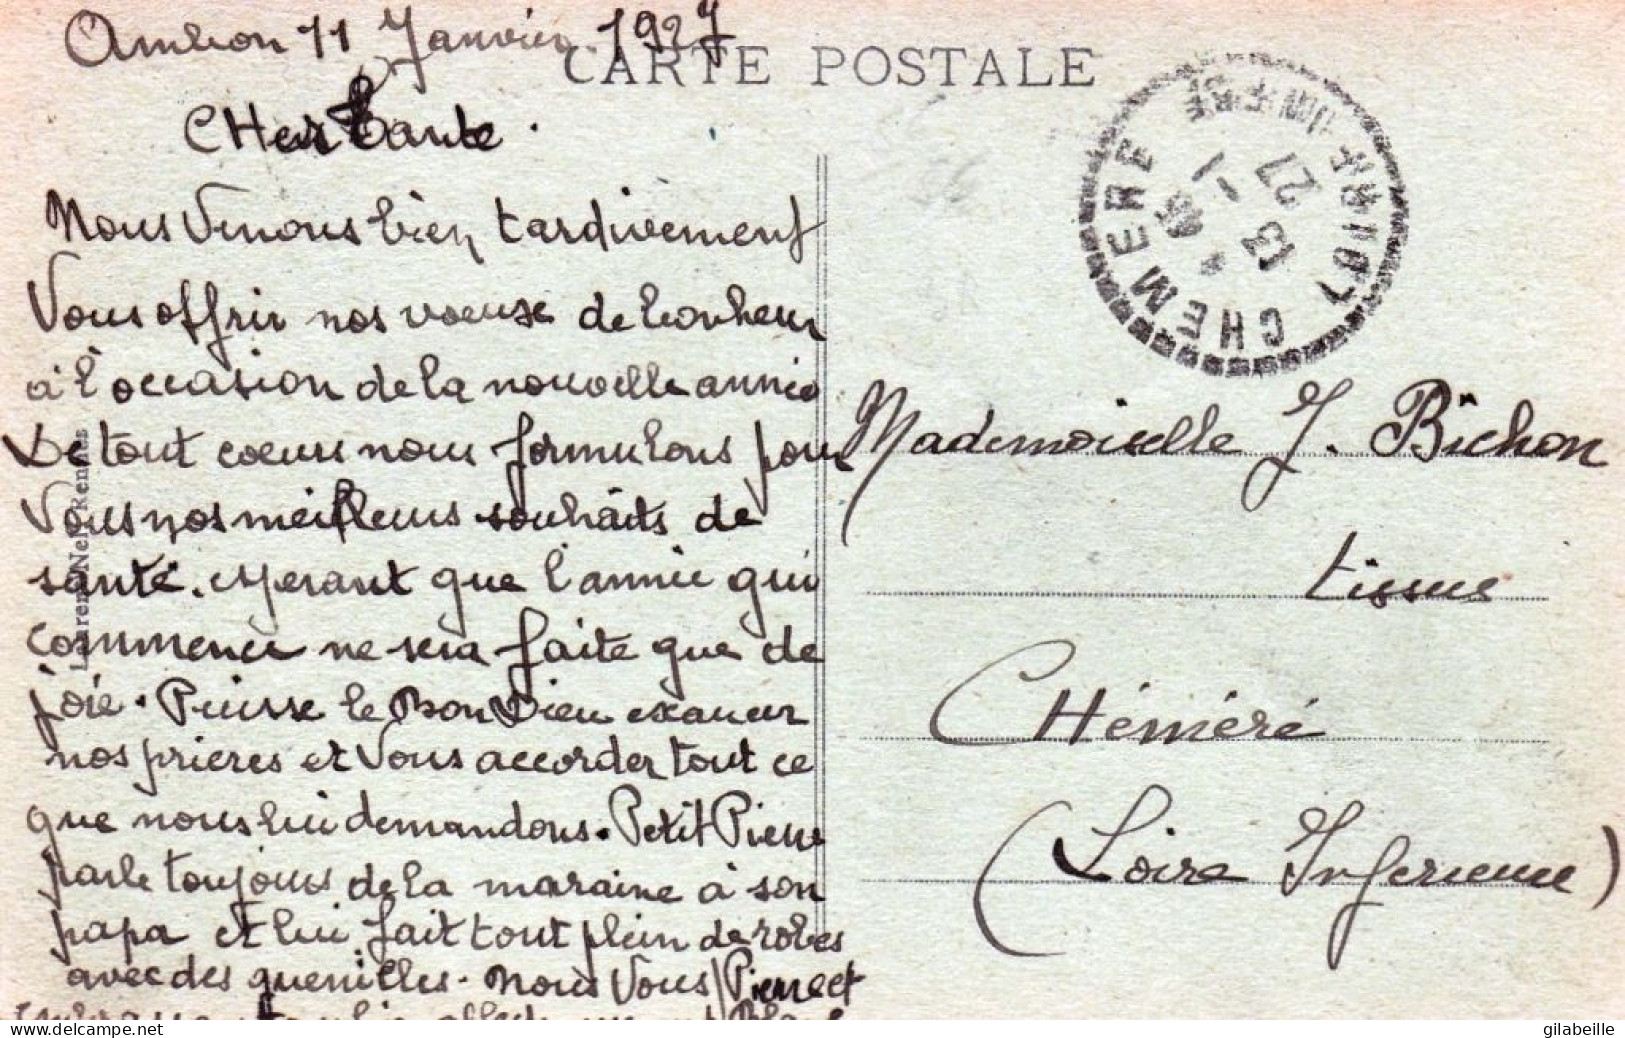 Ambon 11 Janvier 1927
CARTE POSTALE
CHere tante.
Nous Venons bien tardivement
Vous offrir nos voeuse de bonheur
à l'occasion de la nouvelle année
De tout coeurs nous formulons pour
Vous nos meilleurs souhaits de
santé. esperant que l'année qui
commence ne sera faite que de
joie. Puisse le Bon Dieu exaucer
nos prieres et Vous accorder tout ce
que nous lui demandons. Petit Pierre
parle toujours de la maraine à son
papa et lui fait tout plein de robes
avec des guenilles. Nous Vous
Pierre et
Laurent-Nel Rennes
CHEMERE
LOIRE INFRE
13 -1
27
Mademoiselle J. Bichon
tissus
CHéméré
(Loire Inferieure)
gilabeille